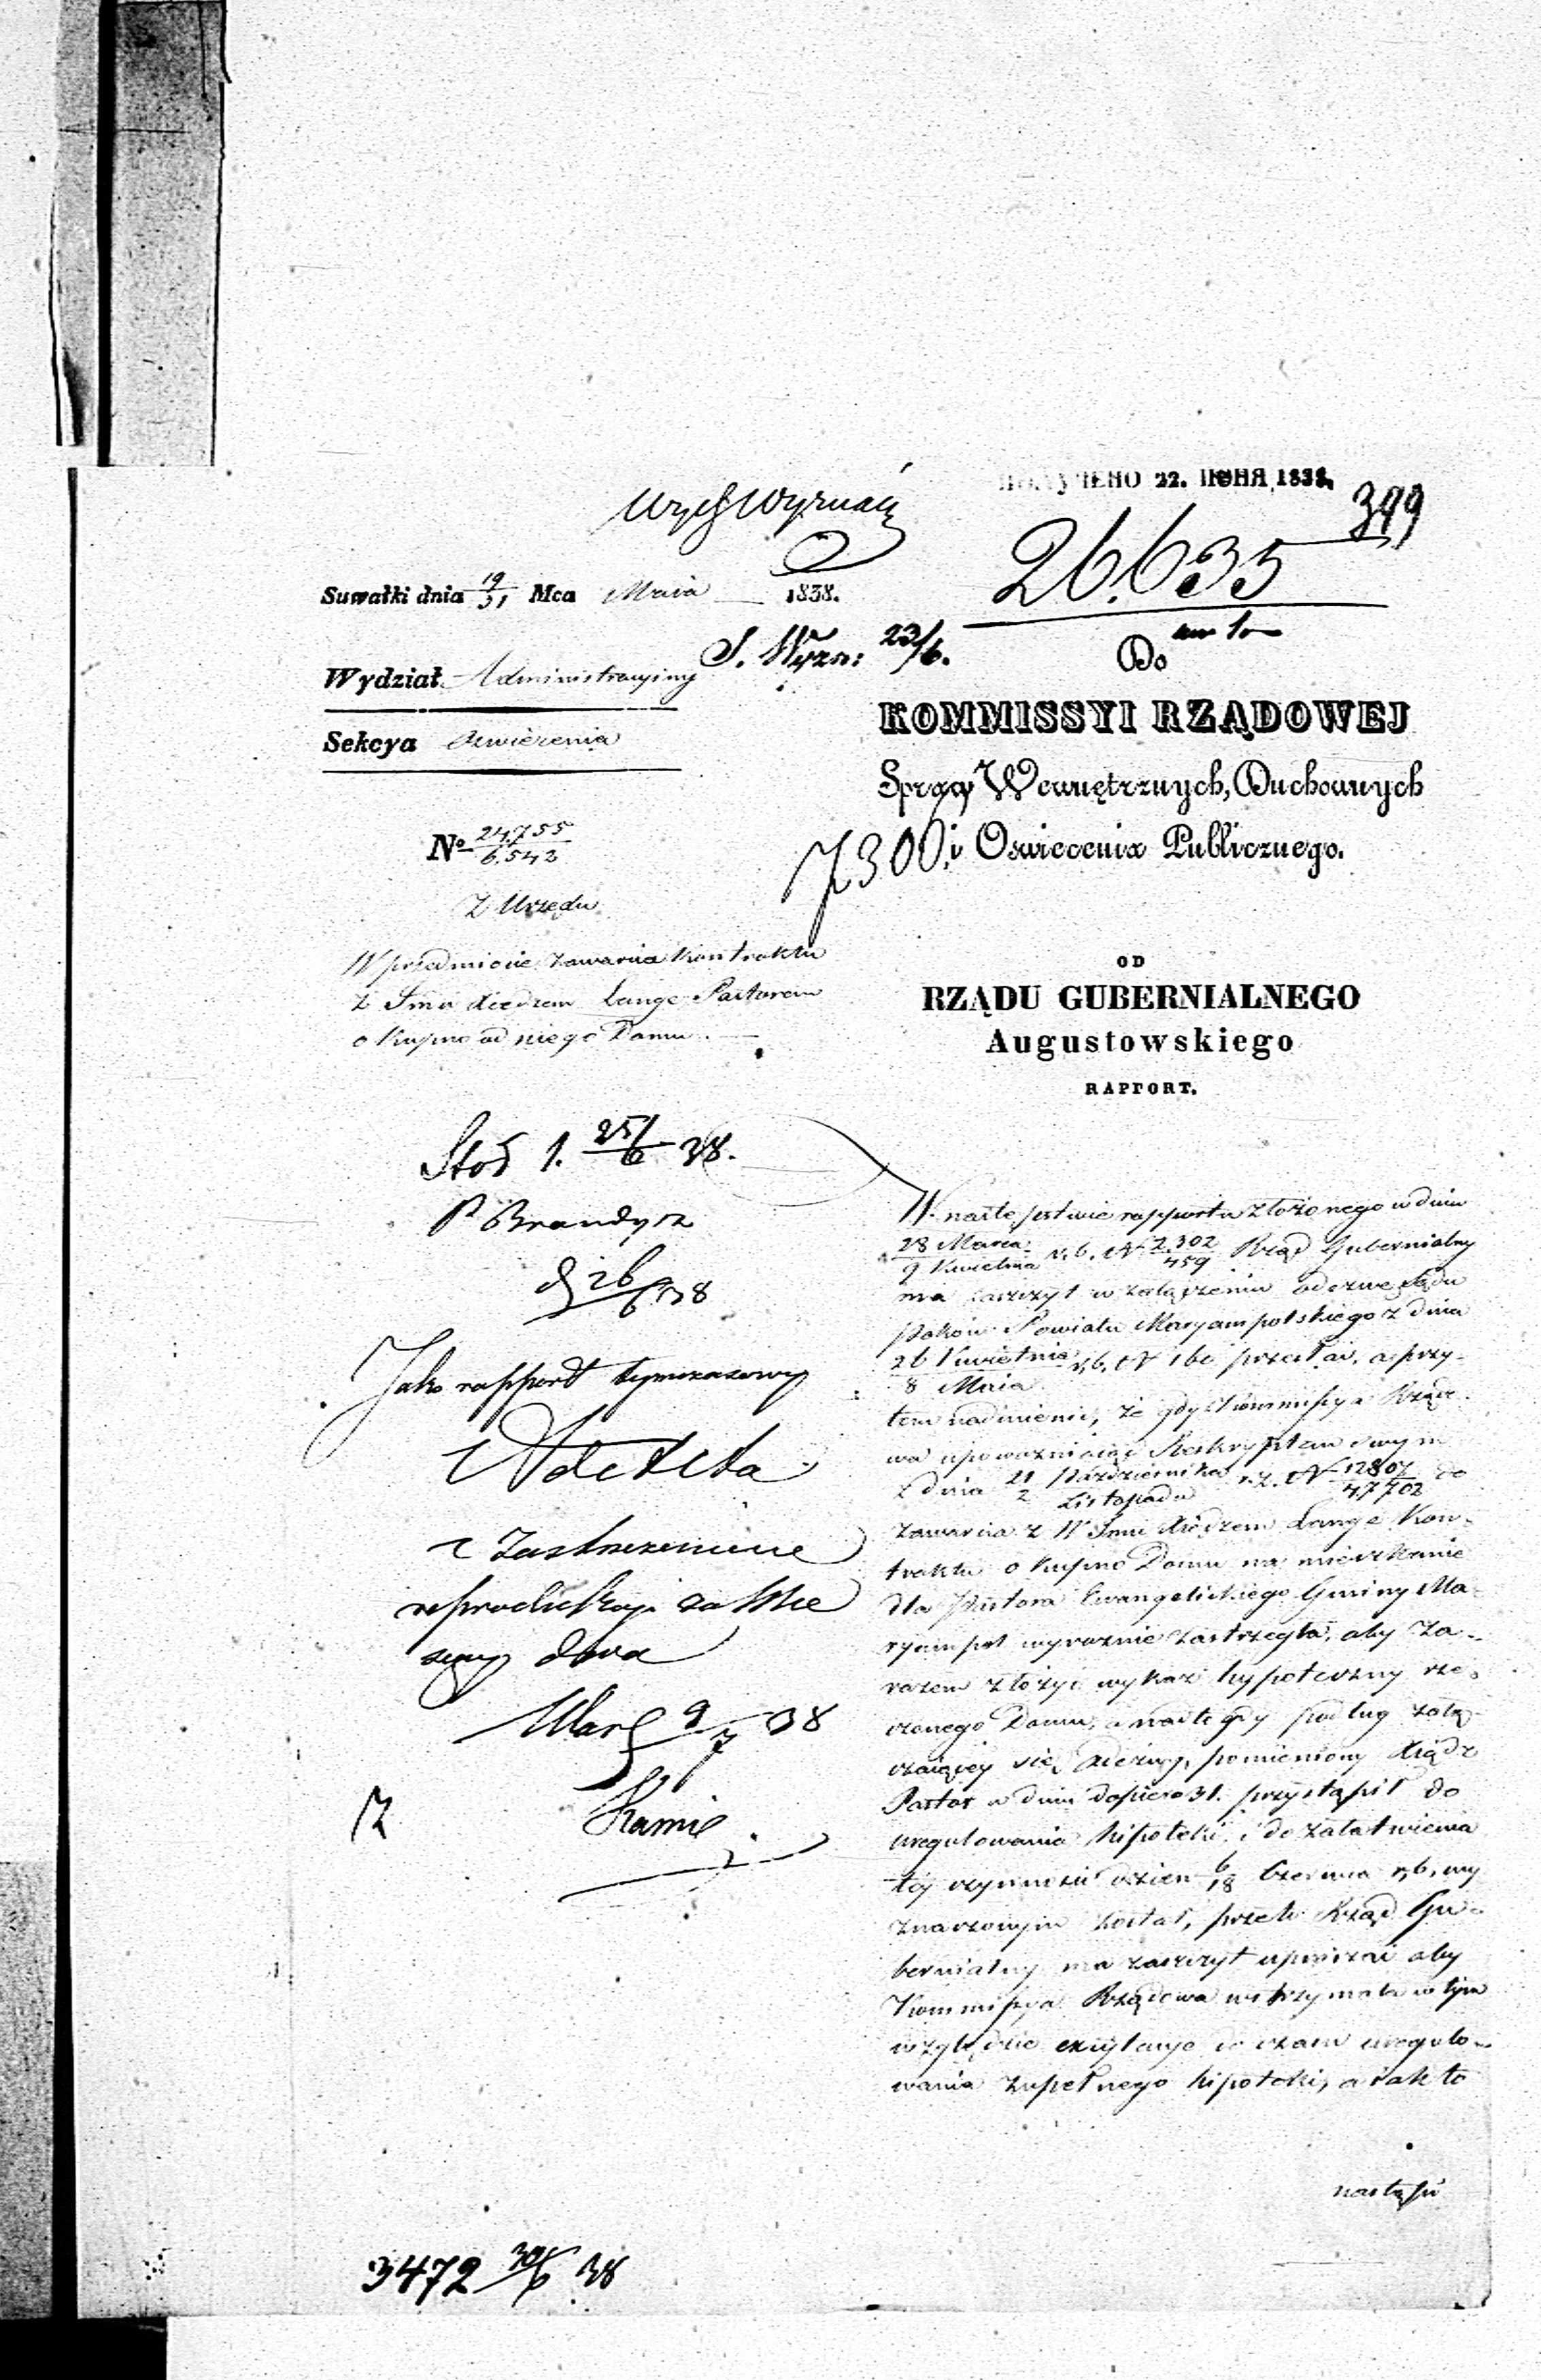 ПОЛУЧЕНО 22. ІЮНЯ 1838.
399
26.635
Suwałki dnia 19/31 Mca Maia 1838.
S. Wyzn: 23/6.
Do
Wydział Administracyiny
KOMMISSYI RZĄDOWEJ
Sekcya Oswiecenia
Spraw Wewnętrznych, Duchownych
i Oswiecenia Publicznego.
7306
No 24.755/6.543
Z Urzędu
W przedmiocie zawarcia Kontraktu
z Jmci Xiedzem Lange Pastorem
o Kupno od niego Domu.
OD
RZĄDU GUBERNIALNEGO
Augustowskiego
RAPPORT.
Stoł 1. 25/6 38.
P Brandysz
d 26/6 38
Jako rapport tymczasowy
do Akta
z zastrzeżeniem
reprodukcyi za Mie
sięcy dwa
War 9/7 38
3472 30/6 38
W następstwie rapportu złożonego w dniu
28 Marca/9 Kwietnia r. b. N 2.302/459 Rząd Gubernialny
ma zaszczyt w załączeniu odezwę Sądu
Pokoiu Powiatu Maryampolskiego z dnia
26 Kwietnia/8 Maia r. b. N przesłać, a przy-
tem nadmienić, że gdy Kommissya Rządo-
wa upoważniaiąc Reskryptem swym
z dnia 21 Października/2 Listopada r. z. N 12807/47702 do
zawarcia z W Jmci Xiędzem Lange Kon-
traktu o kupno Domu na mieszkanie
dla Pastora Ewangelickiego Gminy Ma-
ryampol wyraznie zastrzegła, aby za-
razem złożyć wykaz hypoteczny rze-
czonego Domu, a następnie gdy podług załą-
czaiącey się odezwy, pomieniony Xiądz
Pastor w dniu dopiero 31. przystąpił do
uregulowania hipoteki, i do załatwienia
téy czynności dzień 6/18 Czerwca r. b. wy
znaczonym został, przeto Rząd Gu-
bernialny ma zaszczyt upraszać aby
Kommissya Rządowa wstrzymała w tym
względzie excytacye do czasu uregulo-
wania zupełnego hipoteki, a iak to
nastąpi